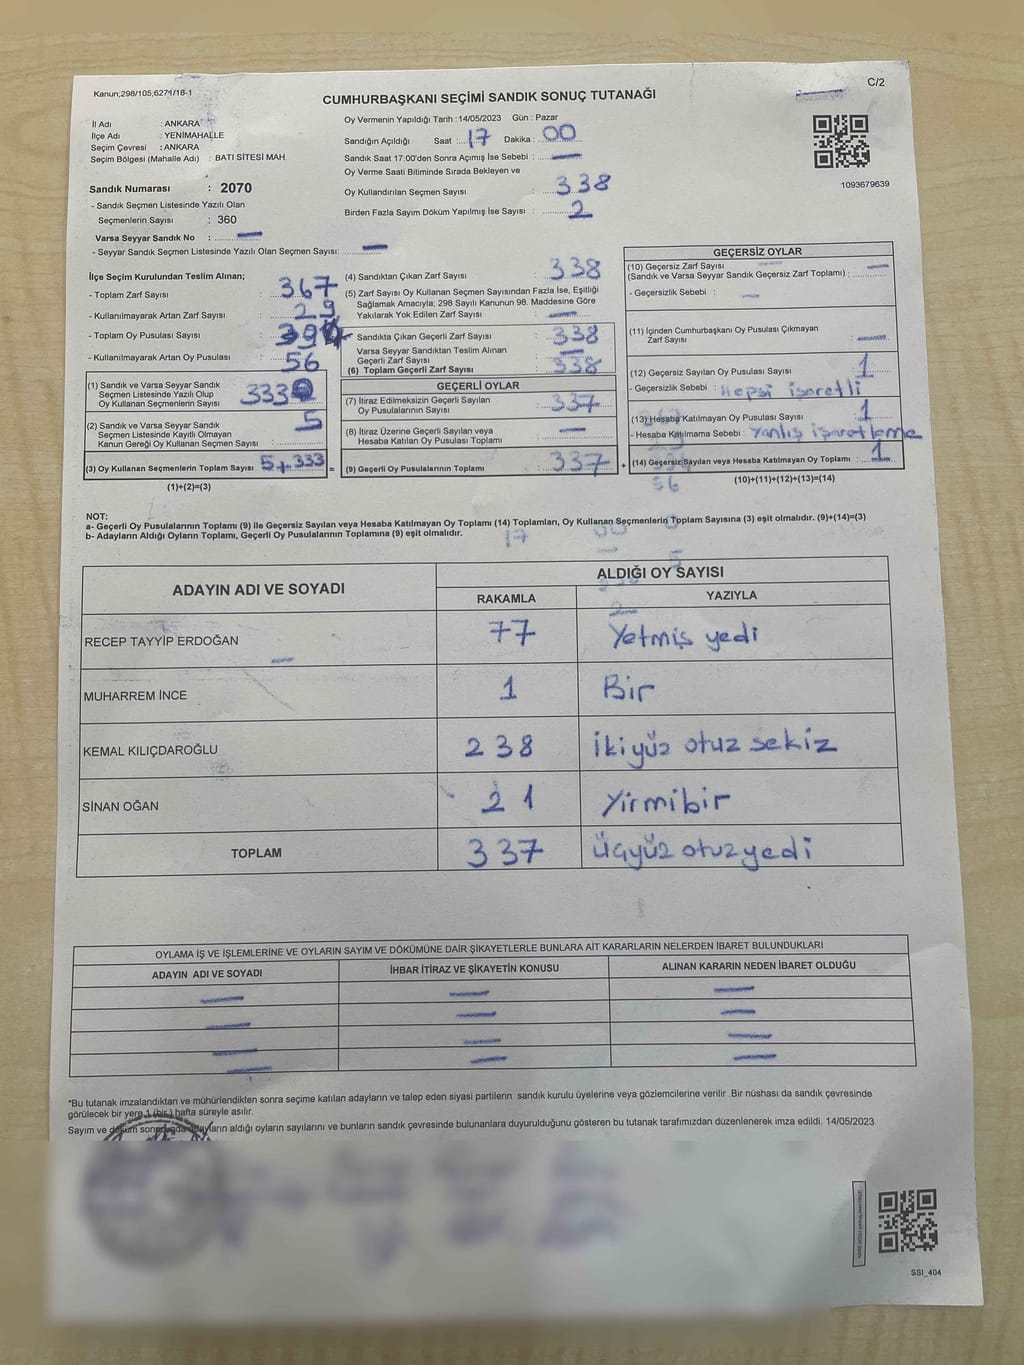 Kanun;298/105;6271/18-1
C/2
CUMHURBAŞKANI SEÇİMİ SANDIK SONUÇ TUTANAĞI
İl Adı : ANKARA
İlçe Adı : YENİMAHALLE
Seçim Çevresi : ANKARA
Seçim Bölgesi (Mahalle Adı) : BATI SİTESİ MAH.
Sandık Numarası : 2070
- Sandık Seçmen Listesinde Yazılı Olan
Seçmenlerin Sayısı : 360
Varsa Seyyar Sandık No : —
- Seyyar Sandık Seçmen Listesinde Yazılı Olan Seçmen Sayısı: —
Oy Vermenin Yapıldığı Tarih :14/05/2023 Gün : Pazar
Sandığın Açıldığı Saat : 17 Dakika : 00
Sandık Saat 17:00'den Sonra Açımış İse Sebebi : —
Oy Verme Saati Bitiminde Sırada Bekleyen ve
Oy Kullandırılan Seçmen Sayısı : 338
Birden Fazla Sayım Döküm Yapılmış İse Sayısı : 2
1093679639
İlçe Seçim Kurulundan Teslim Alınan;
- Toplam Zarf Sayısı : 367
- Kullanılmayarak Artan Zarf Sayısı : 29
- Toplam Oy Pusulası Sayısı :
- Kullanılmayarak Artan Oy Pusulası : 56
(1) Sandık ve Varsa Seyyar Sandık
Seçmen Listesinde Yazılı Olup
Oy Kullanan Seçmenlerin Sayısı : 333
(2) Sandık ve Varsa Seyyar Sandık
Seçmen Listesinde Kayıtlı Olmayan
Kanun Gereği Oy Kullanan Seçmen Sayısı : 5
(3) Oy Kullanan Seçmenlerin Toplam Sayısı : 5+333 =
(1)+(2)=(3)
(4) Sandıktan Çıkan Zarf Sayısı : 338
(5) Zarf Sayısı Oy Kullanan Seçmen Sayısından Fazla İse, Eşitliği
Sağlamak Amacıyla; 298 Sayılı Kanunun 98. Maddesine Göre
Yakılarak Yok Edilen Zarf Sayısı : —
Sandıkta Çıkan Geçerli Zarf Sayısı : 338
Varsa Seyyar Sandıktan Teslim Alınan
Geçerli Zarf Sayısı : —
(6) Toplam Geçerli Zarf Sayısı : 338
GEÇERLİ OYLAR
(7) İtiraz Edilmeksizin Geçerli Sayılan
Oy Pusulalarının Sayısı : 337
(8) İtiraz Üzerine Geçerli Sayılan veya
Hesaba Katılan Oy Pusulası Toplamı : —
(9) Geçerli Oy Pusulalarının Toplamı : 337 +
GEÇERSİZ OYLAR
(10) Geçersiz Zarf Sayısı
(Sandık ve Varsa Seyyar Sandık Geçersiz Zarf Toplamı) : —
- Geçersizlik Sebebi : —
(11) İçinden Cumhurbaşkanı Oy Pusulası Çıkmayan
Zarf Sayısı : —
(12) Geçersiz Sayılan Oy Pusulası Sayısı : 1
- Geçersizlik Sebebi : Hepsi işaretli
(13) Hesaba Katılmayan Oy Pusulası Sayısı : 1
- Hesaba Katılmama Sebebi : Yanlış işaretleme
(14) Geçersiz Sayılan veya Hesaba Katılmayan Oy Toplamı : 1
(10)+(11)+(12)+(13)=(14)
NOT:
a- Geçerli Oy Pusulalarının Toplamı (9) ile Geçersiz Sayılan veya Hesaba Katılmayan Oy Toplamı (14) Toplamları, Oy Kullanan Seçmenlerin Toplam Sayısına (3) eşit olmalıdır. (9)+(14)=(3)
b- Adayların Aldığı Oyların Toplamı, Geçerli Oy Pusulalarının Toplamına (9) eşit olmalıdır.
ADAYIN ADI VE SOYADI ALDIĞI OY SAYISI
RAKAMLA YAZIYLA
RECEP TAYYİP ERDOĞAN 77 Yetmiş yedi
MUHARREM İNCE 1 Bir
KEMAL KILIÇDAROĞLU 238 İkiyüz otuz sekiz
SİNAN OĞAN 21 Yirmibir
TOPLAM 337 Üçyüz otuzyedi
OYLAMA İŞ VE İŞLEMLERİNE VE OYLARIN SAYIM VE DÖKÜMÜNE DAİR ŞİKAYETLERLE BUNLARA AİT KARARLARIN NELERDEN İBARET BULUNDUKLARI
ADAYIN ADI VE SOYADI İHBAR İTİRAZ VE ŞİKAYETİN KONUSU ALINAN KARARIN NEDEN İBARET OLDUĞU
— — —
— — —
— — —
— — —
*Bu tutanak imzalandıktan ve mühürlendikten sonra seçime katılan adayların ve talep eden siyasi partilerin sandık kurulu üyelerine veya gözlemcilerine verilir .Bir nüshası da sandık çevresinde
görülecek bir yere 1 (bir ) hafta süreyle asılır.
Sayım ve döküm sonucunda adayların aldığı oyların sayılarını ve bunların sandık çevresinde bulunanlara duyurulduğunu gösteren bu tutanak tarafımızdan düzenlenerek imza edildi. 14/05/2023
SSI_404